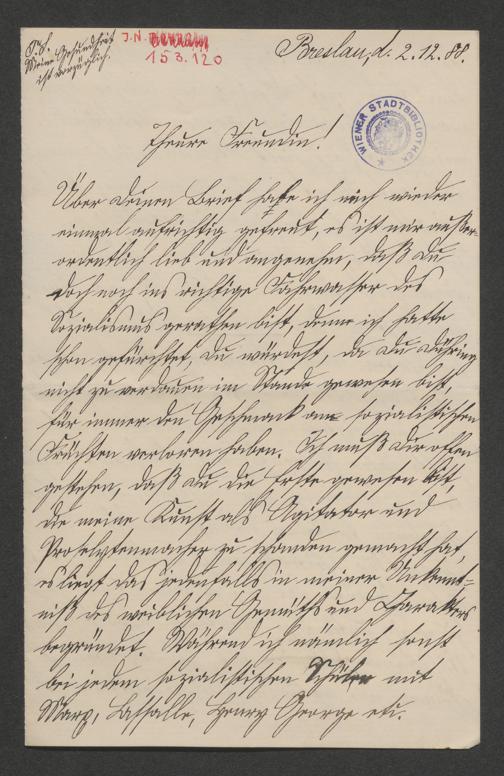 P.S.
Meine Gesundheit
ist vorzüglich.
J.N.
153.120
Breslau, d. 2.12.88.
WIENER STADTBIBLIOTHEK
Theure Freundin!
Über Deinen Brief habe ich mich wieder
einmal aufrichtig gefreut, es ist mir außer-
ordentlich lieb und angenehm, daß Du
doch noch ins richtige Fahrwasser des
Sozialismus gerathen bist, denn ich hatte
schon gefürchtet, Du würdest, da Du Dühring
nicht zu verdauen im Stande gewesen bist,
für immer den Geschmack an sozialistischen
Früchten verloren haben. Ich muß Dir offen
gestehen, daß Du die Erste gewesen bist,
die meine Kunst als Agitator und
Proselytenmacher zu schanden gemacht hat,
es liegt das jedenfalls in meiner Unkennt-
niß des weiblichen Gemüths und Charakters
begründet. Während ich nämlich sonst
bei jedem sozialistischen Schüler mit
Marx, Lassalle, Henry George etc.